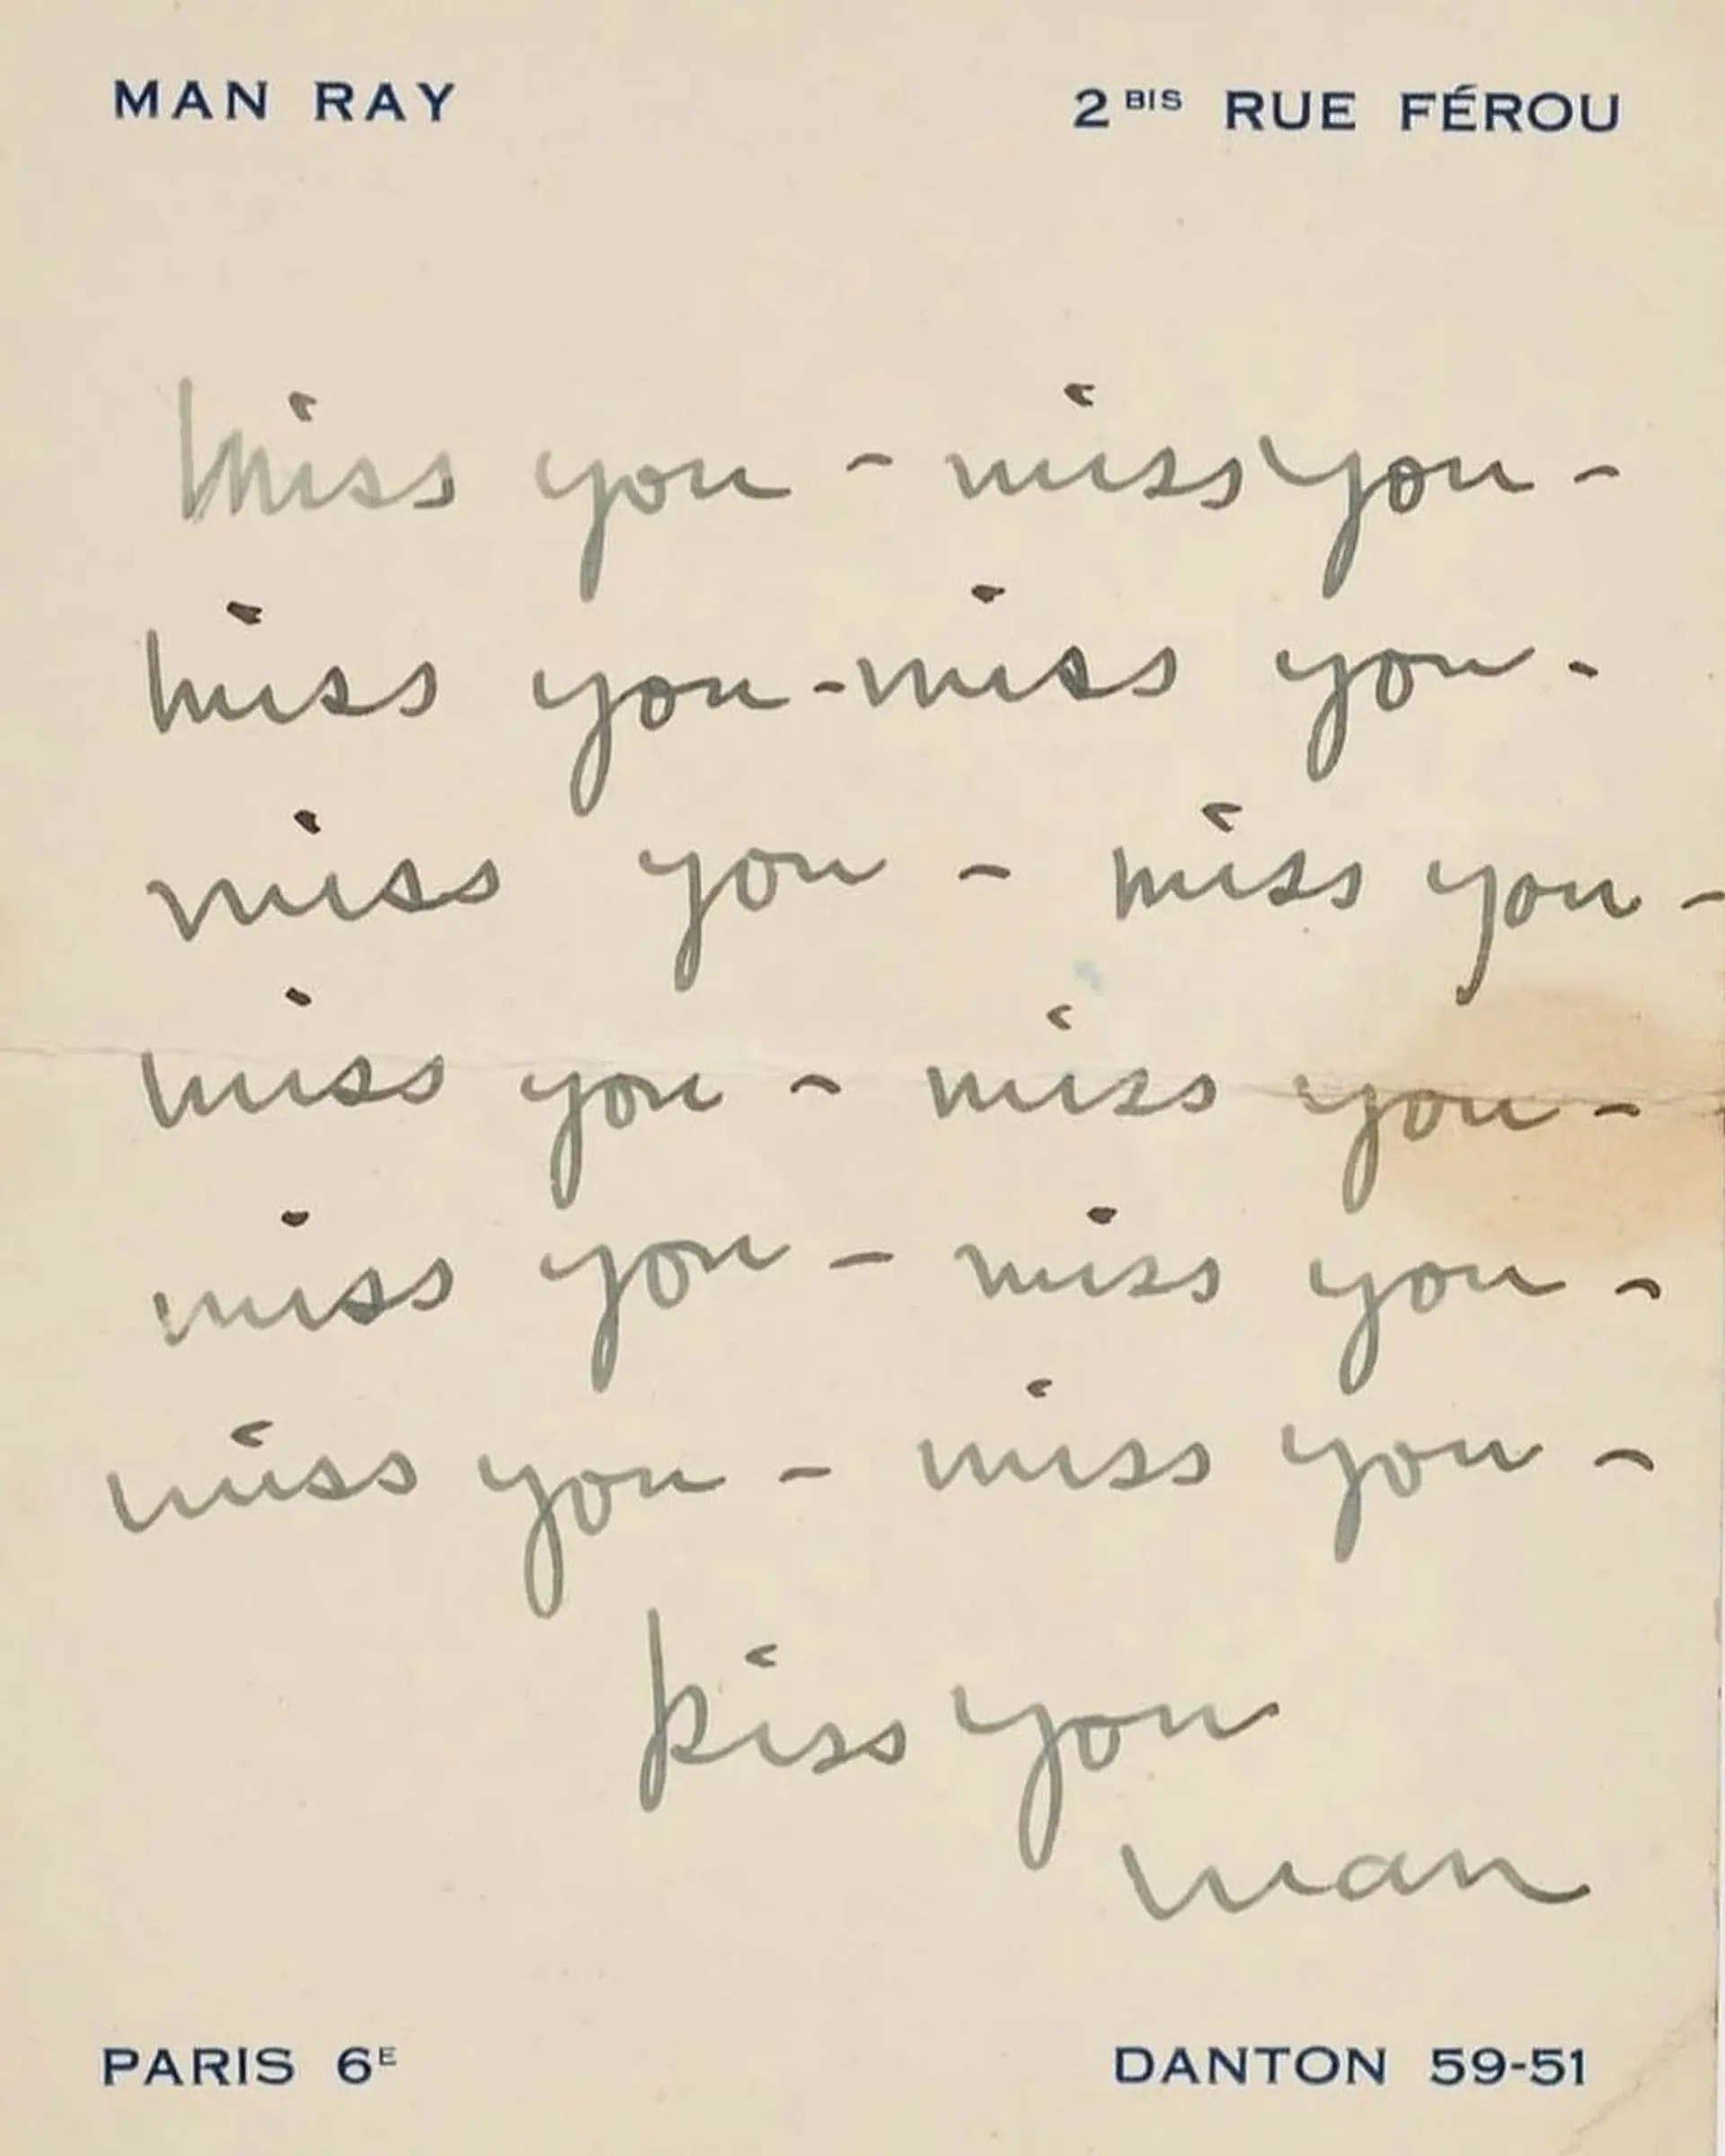 MAN RAY 2 BIS RUE FÉROU
Miss you - miss you -
miss you - miss you -
miss you - miss you -
miss you - miss you -
miss you - miss you -
miss you - miss you -
kiss you
Man
PARIS 6E DANTON 59-51